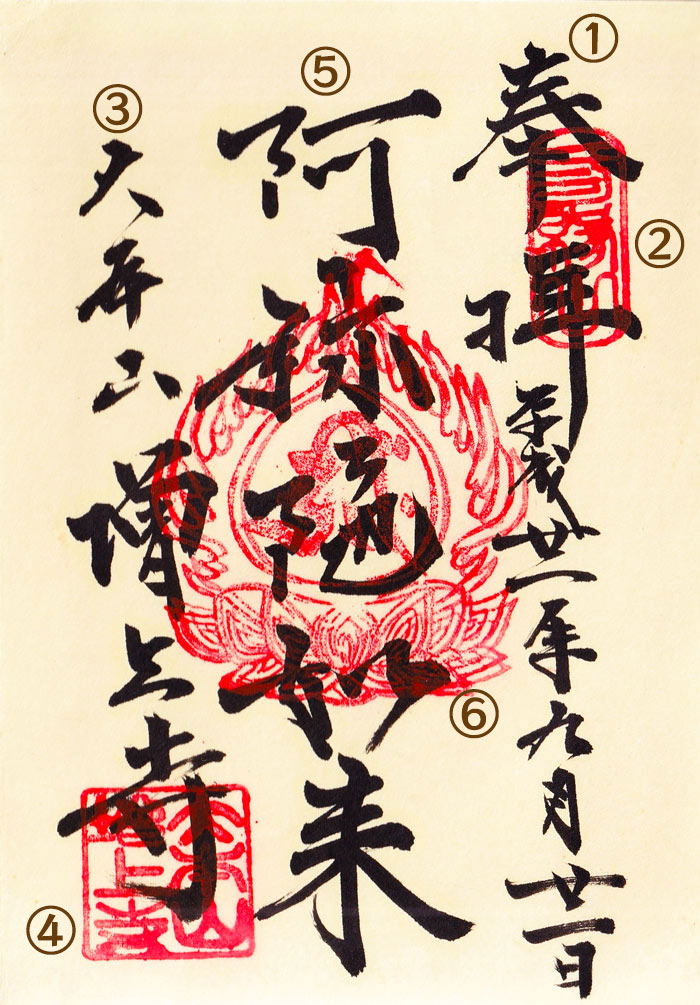 ①
奉拝
②
平成廿一年九月廿一日
⑤
阿弥陀如来
⑥
③
大本山増上寺
④
大本山
増上寺